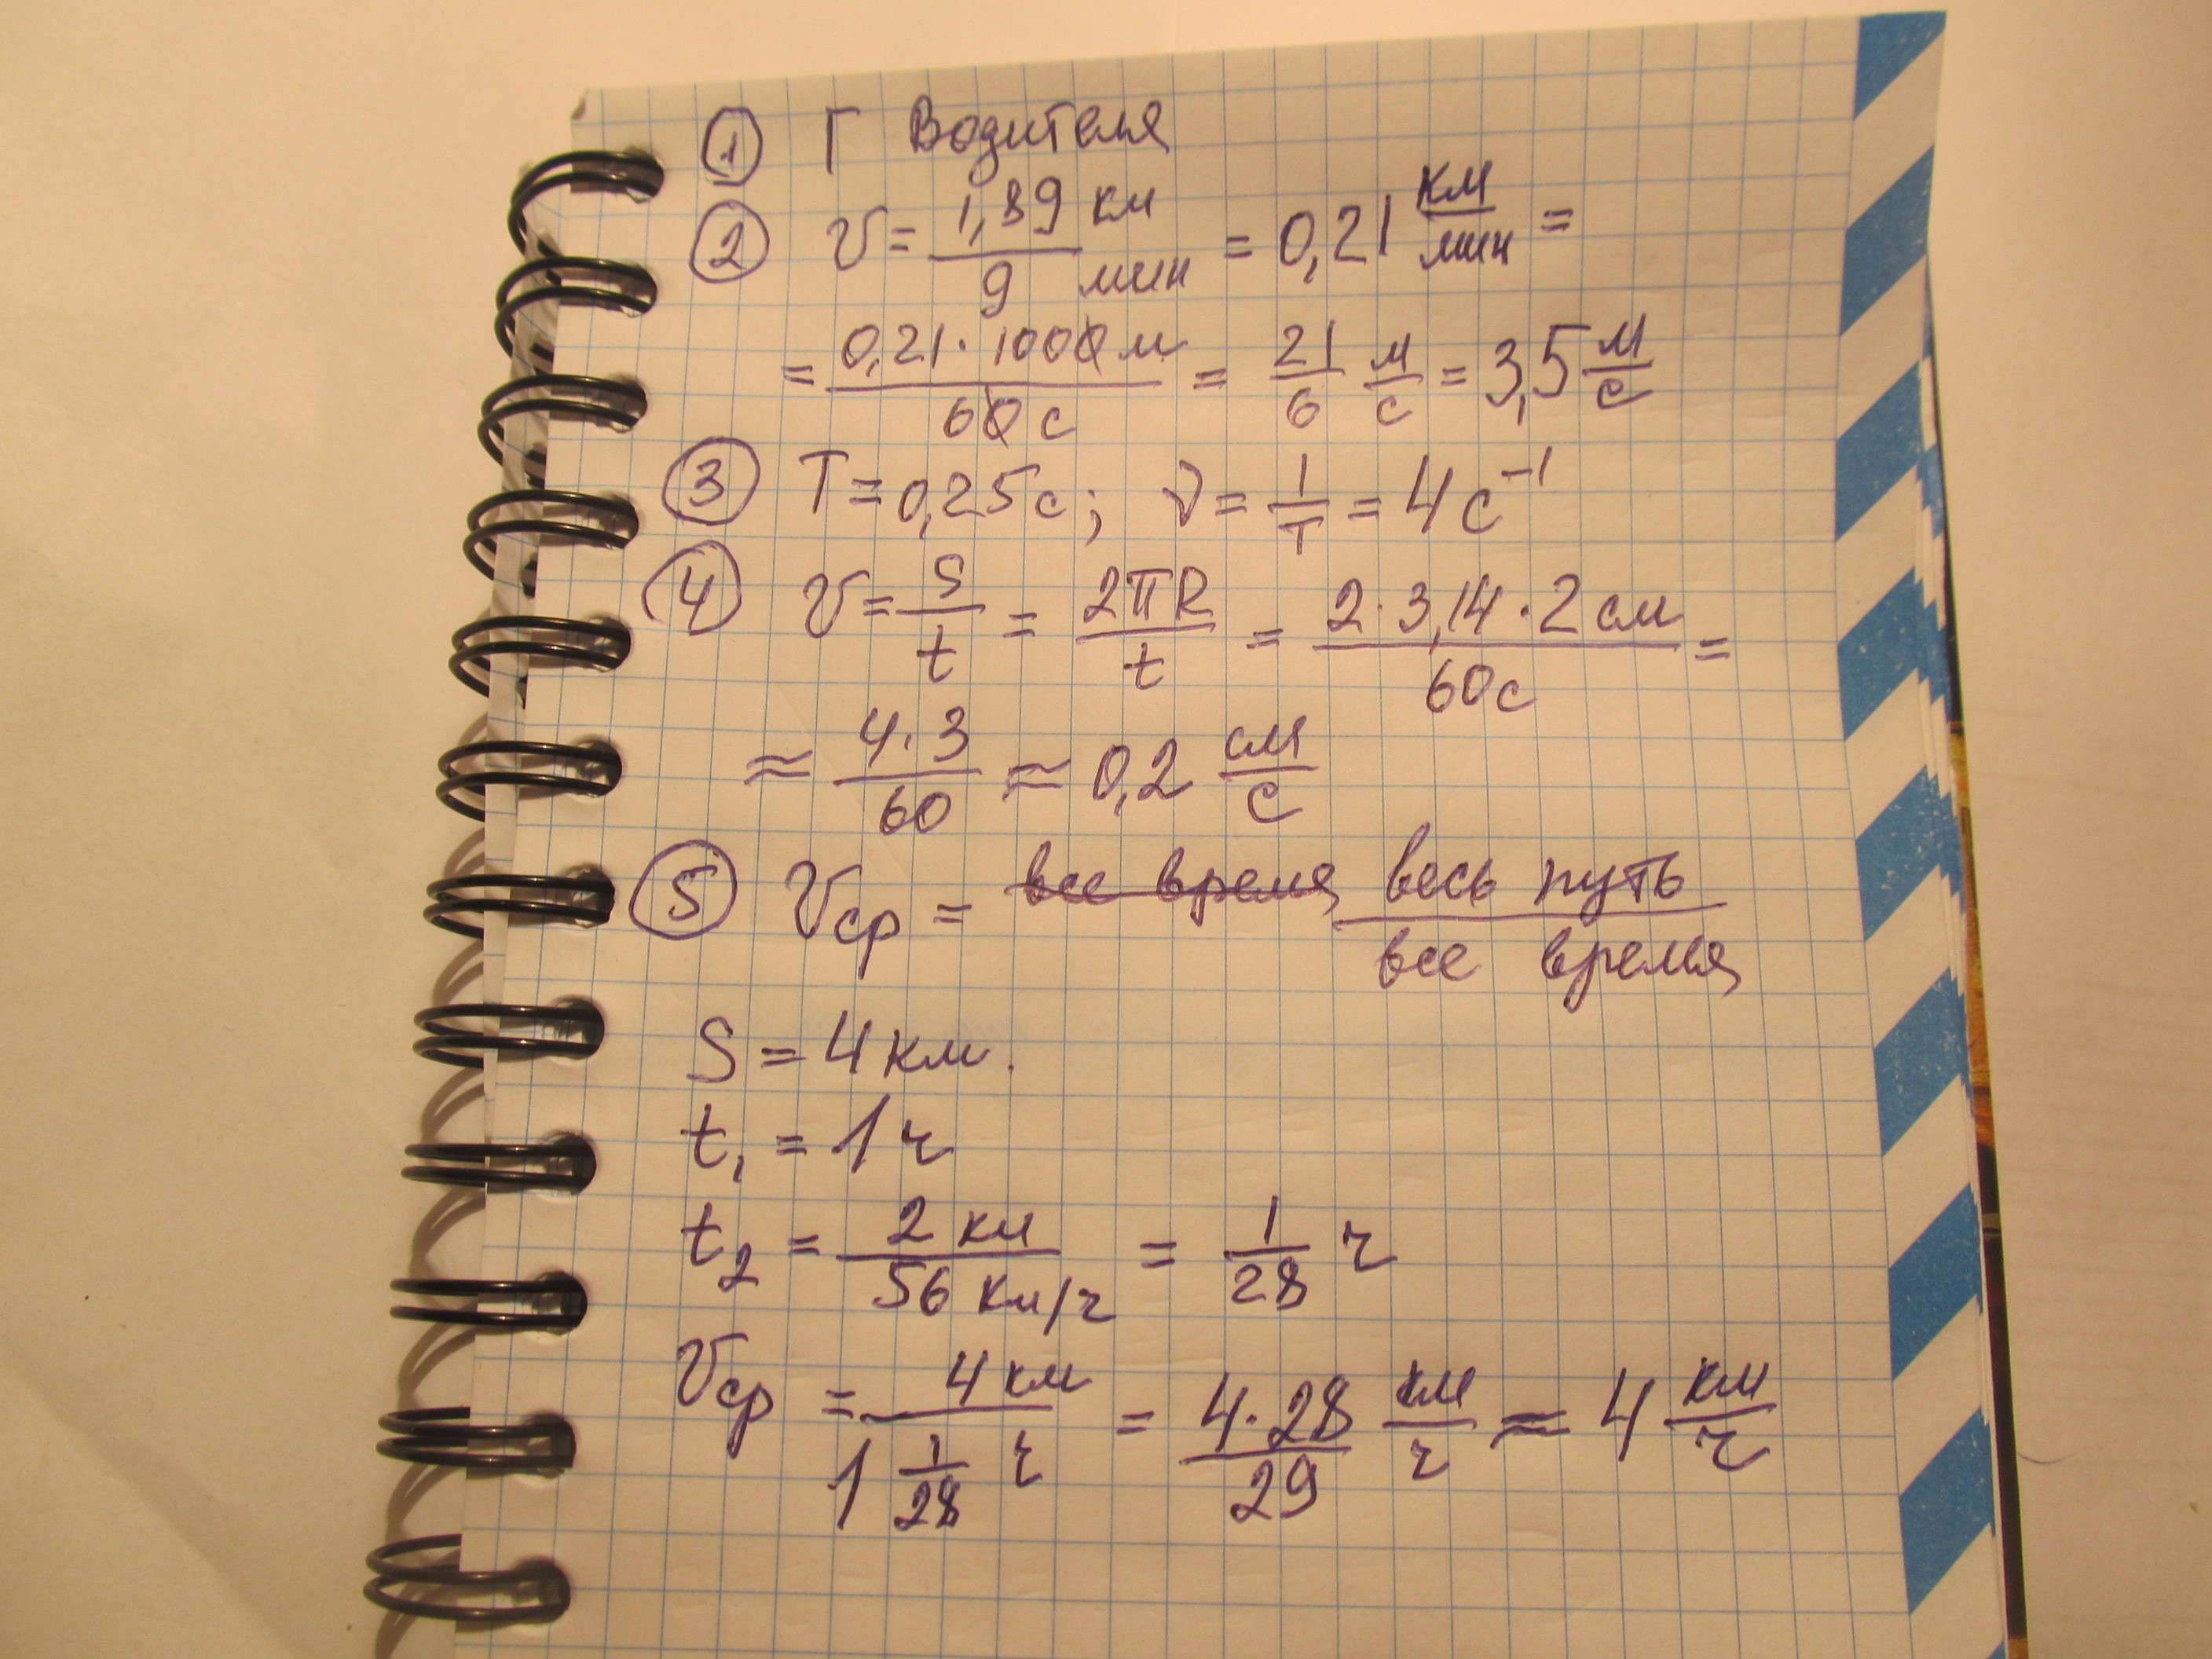 ① Г водителя
② v = 1,89 км / 9 мин = 0,21 км/мин =
= 0,21·1000 м / 60 с = 21/6 м/с = 3,5 м/с
③ T = 0,25 с; ν = 1/T = 4 с⁻¹
④ v = S/t = 2πR/t = 2·3,14·2 см / 60 с =
≈ 4·3/60 ≈ 0,2 см/с
⑤ vср = все время весь путь / все время
S = 4 км.
t₁ = 1 ч
t₂ = 2 км / 56 км/ч = 1/28 ч
vср = 4 км / 1 1/28 ч = 4·28/29 км/ч ≈ 4 км/ч